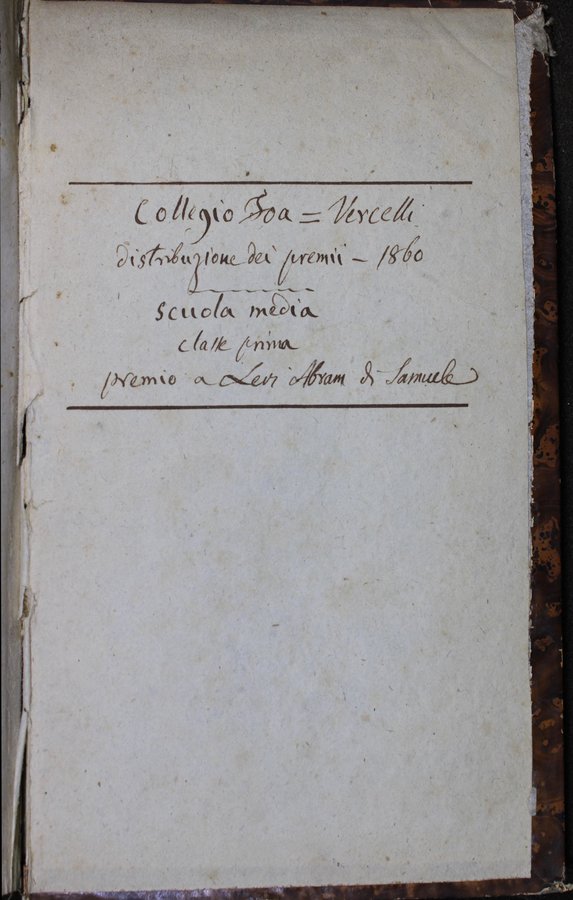 Collegio Foa = Vercelli
distribuzione dei premii – 1860
scuola media
classe prima
premio a Levi Abram di Samuele